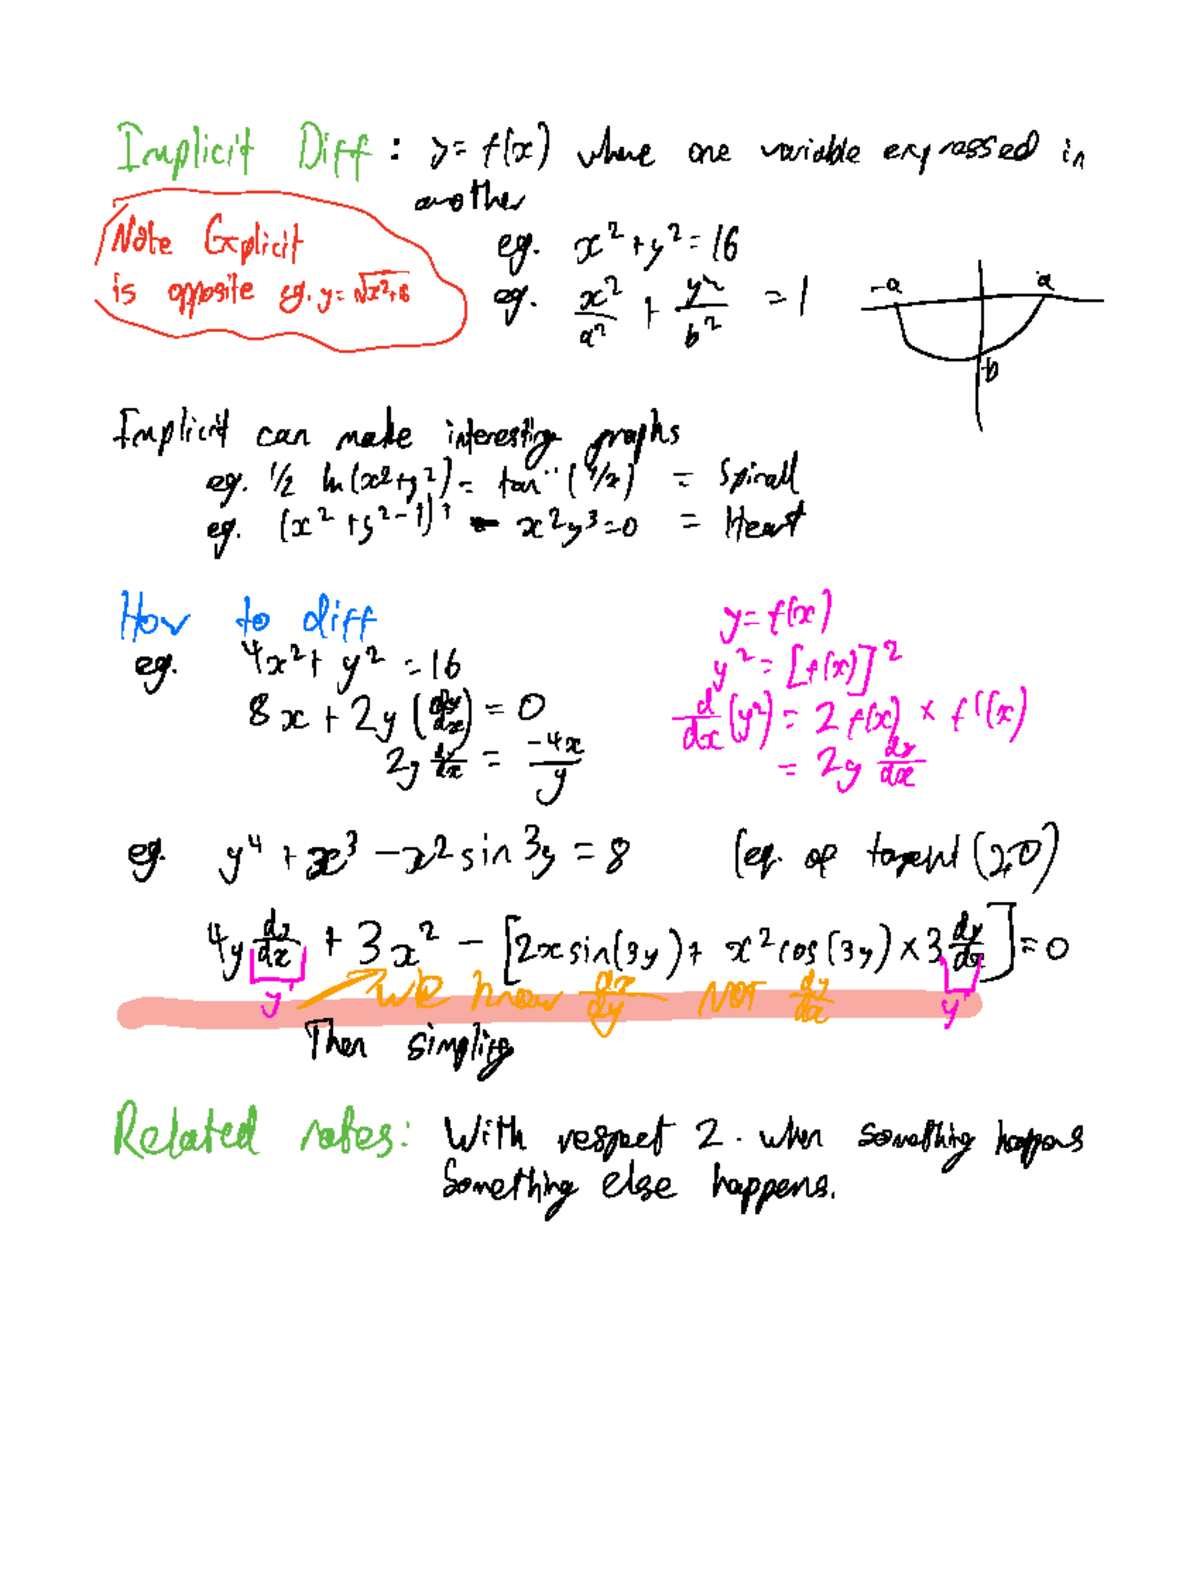 Implicit Diff : y = f(x) where one variable expressed in
another
Note Explicit
is opposite eg. y = √x²+8
eg. x² + y² = 16
eg. x²/a² + y²/b² = 1
-a a
-b
Implicit can make interesting graphs
eg. 1/2 ln(x²+y²) = tan⁻¹(y/x) = Spirall
eg. (x² + y² - 1)³ - x²y³ = 0 = Heart
How to diff
eg. 4x² + y² = 16
8x + 2y (dy/dx) = 0
2y dy/dx = -4x/y
y = f(x)
y² = [f(x)]²
d/dx (y²) = 2 f(x) × f'(x)
= 2y dy/dx
eg. y⁴ + x³ - x² sin 3y = 8 (eq. of tangent (2,0)
4y dy/dx + 3x² - [2x sin(3y) + x² cos(3y) × 3 dy/dx] = 0
y' we know dx/dy NOT dy/dx y'
Then simplify
Related rates: With respect 2. when something happens
Something else happens.